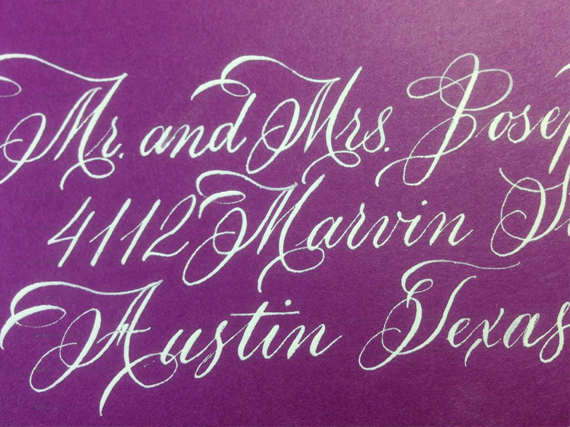 Mr. and Mrs. Josep
4112 Marvin S
Austin Texas